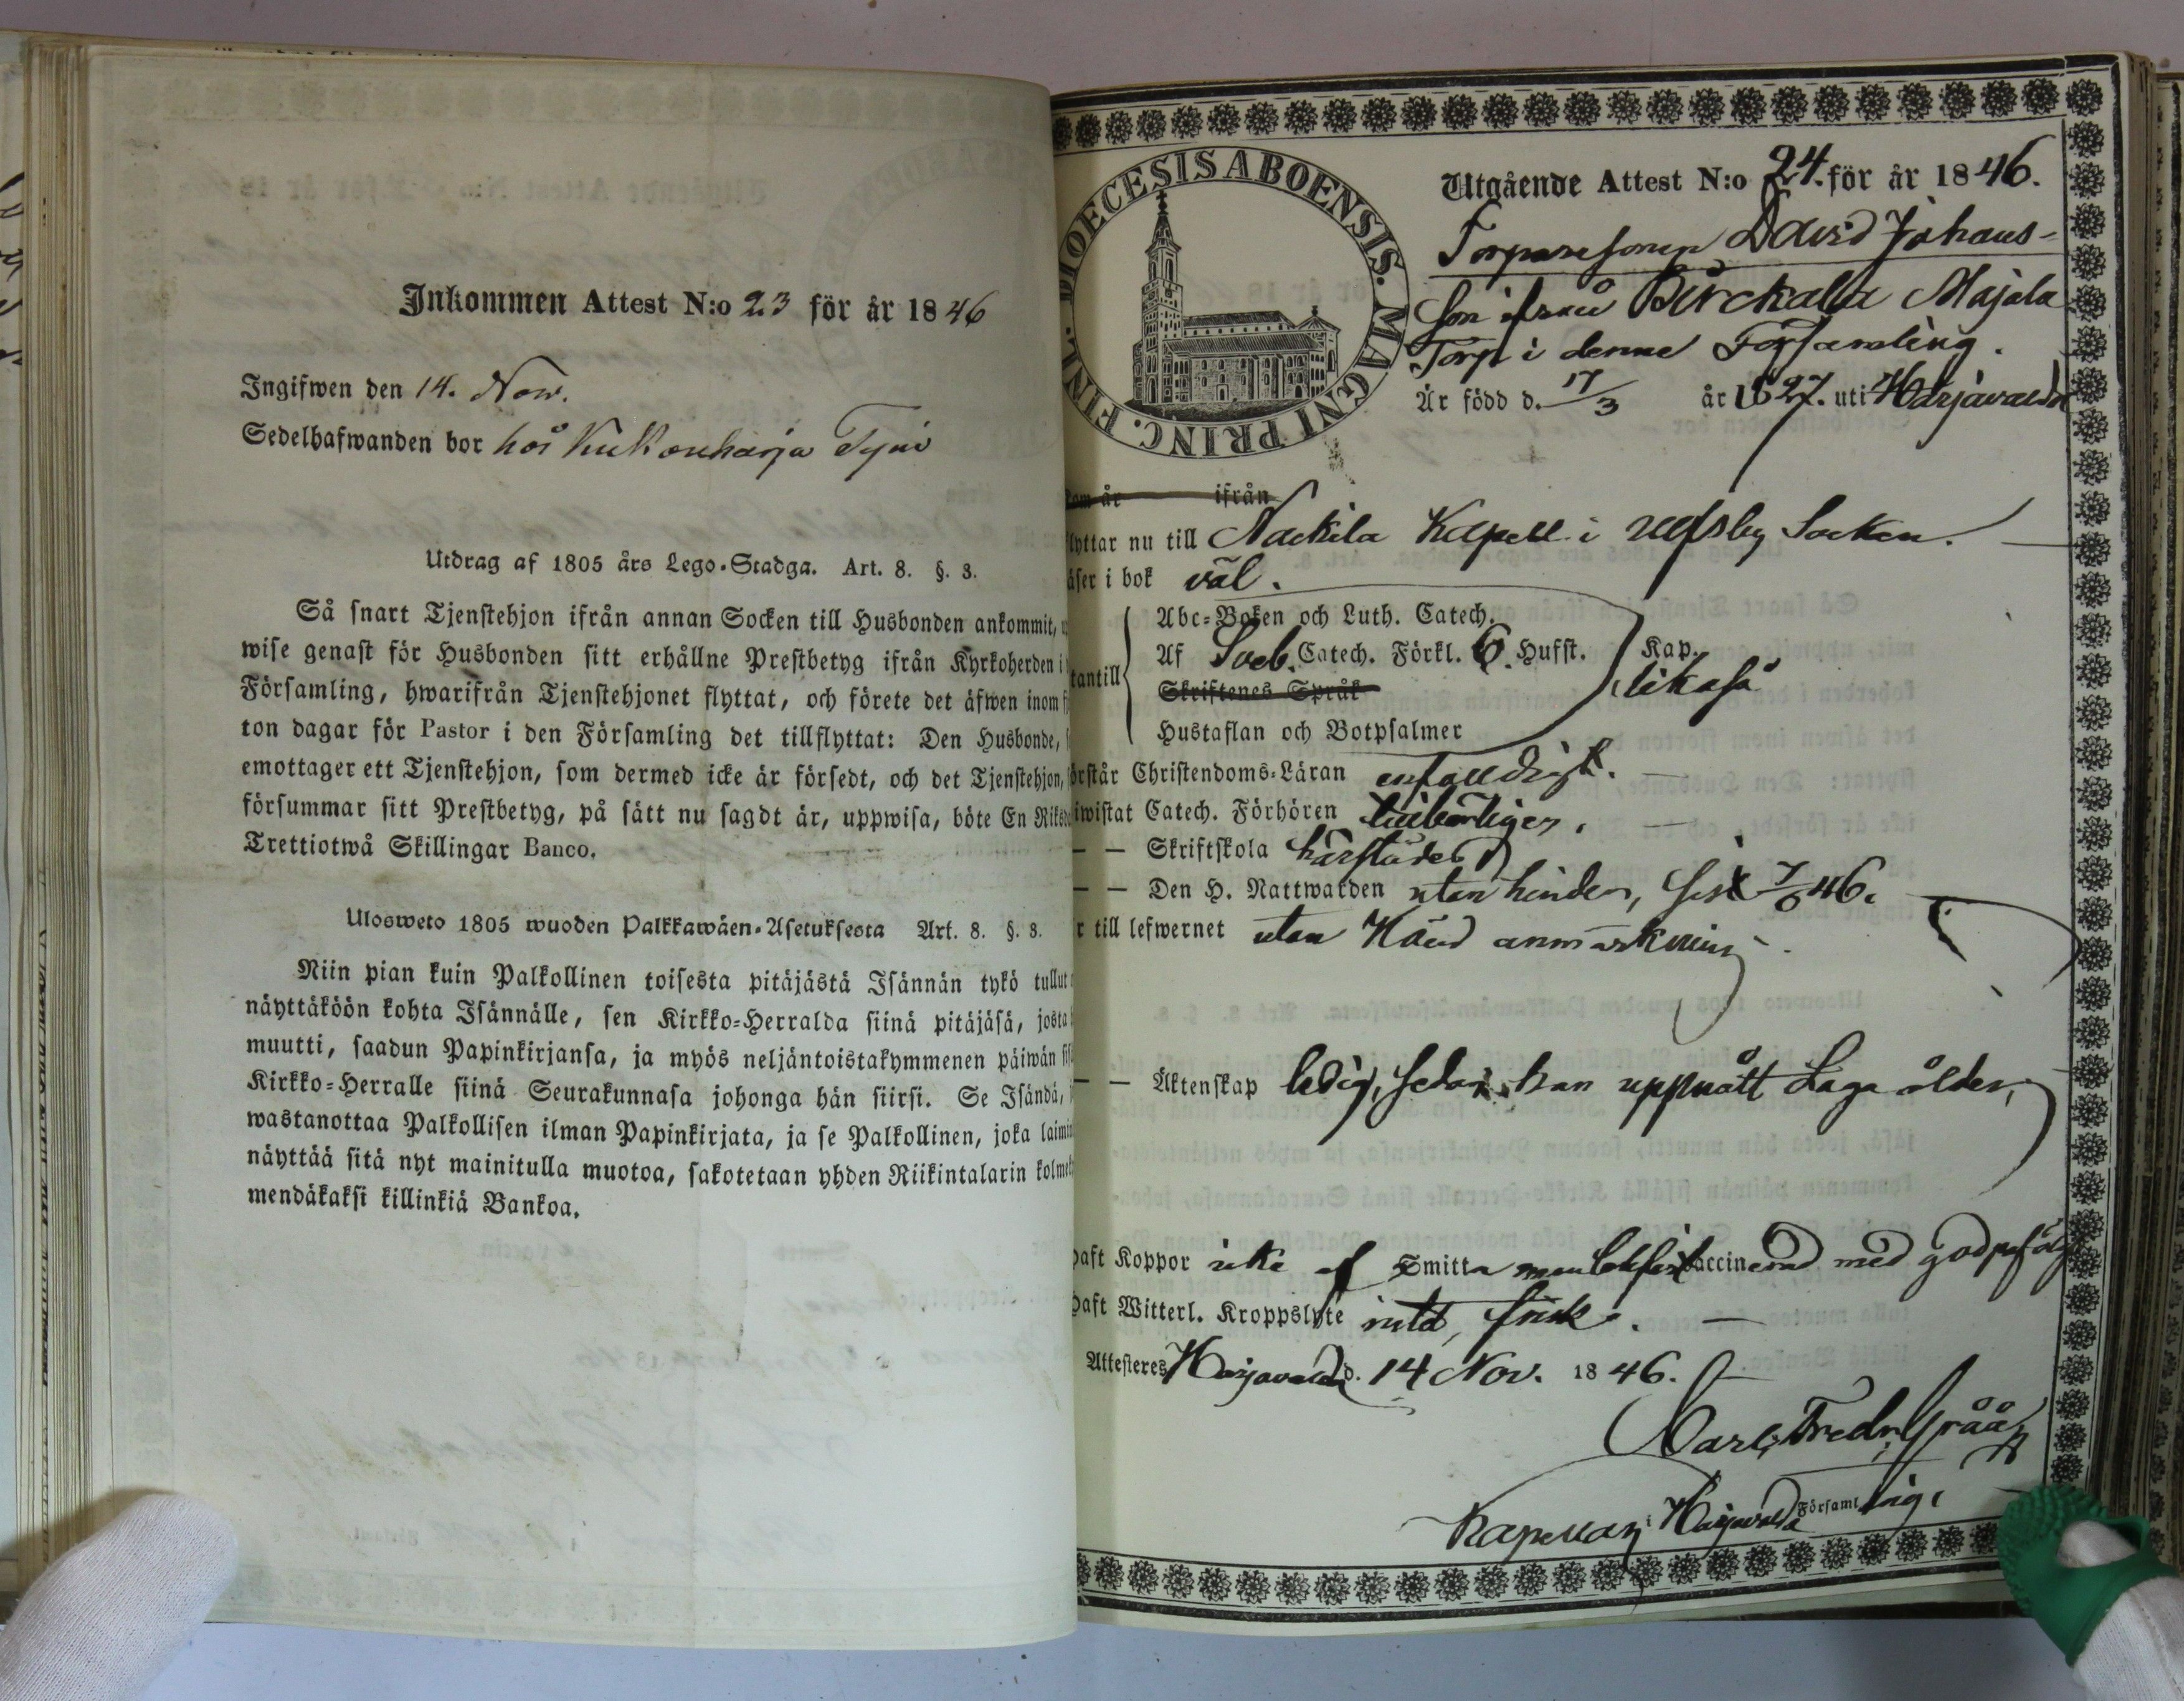 Inkommen Attest N:o 23 för år 1846
Ingifwen den 14. Now.
Sedelhafwanden bor hos Kukonharja Tyni
Utdrag af 1805 års Lego-Stadga. Art. 8. §. 3.
Så snart Tjenstehjon ifrån annan Socken till Husbonden ankommit,
wise genast för Husbonden sitt erhållne Prestbetyg ifrån Kyrkoherden i
Församling, hwarifrån Tjenstehjonet flyttat, och förete det äfwen inom
ton dagar för Pastor i den Församling det tillflyttat: Den Husbonde,
emottager ett Tjenstehjon, som dermed icke är försedt, och det Tjenstehjon,
försummar sitt Prestbetyg, på sätt nu sagdt är, uppwisa, böte En Riks
Trettiotwå Skillingar Banco.
Ulosweto 1805 wuoden Palkkawäen-Asetuksesta Art. 8. §. 3.
Niin pian kuin Palkollinen toisesta pitäjästä Isännän tykö tullut
näyttäköön kohta Isännälle, sen Kirkko-Herralda siinä pitäjäsä, josta
muutti, saadun Papinkirjansa, ja myös neljäntoistakymmenen päiwän
Kirkko-Herralle siinä Seurakunnasa johonga hän siirsi. Se Isändä,
wastanottaa Palkollisen ilman Papinkirjata, ja se Palkollinen, joka laimi
näyttää sitä nyt mainitulla muotoa, sakotetaan yhden Riikintalarin kolme
mendäkaksi killinkiä Bankoa.
FINL. DIOECESIS ABOENSIS. MAGNI PRINC.
Utgående Attest N:o 24. för år 1846.
Torparesonen David Johans-
son ifrån Birckala Majala
Torp i denne Församling.
Är född d. 17/3 år 1827. uti Harjavalda
kom år ifrån
lyttar nu till Nackila Kapell i Ulfsby Socken.
äser i bok väl.
Abc-Boken och Luth. Catech.
Af Sveb. Catech. Förkl. 6. Hufst. Kap.
tantill
Skriftenes Språk likaså
Hustaflan och Botpsalmer
örstår Christendoms-Läran enfalldigt.
iwistat Catech. Förhören tillbörligen.
— — Skriftskola härstädes
— — Den H. Nattwarden utan hinder, sist 7/6 46.
r till lefwernet utan Känd anmärkning.
— — Äktenskap ledig, sedan han uppnått Laga ålder.
haft Koppor icke af Smitta men vaccinerad med god påföljd
haft Witterl. Kroppslyte intet, frisk.
Attesteres Harjavalda d. 14 Nov. 1846.
Carl Fredr. Gråå
Kapellan i Harjavalda Församling.